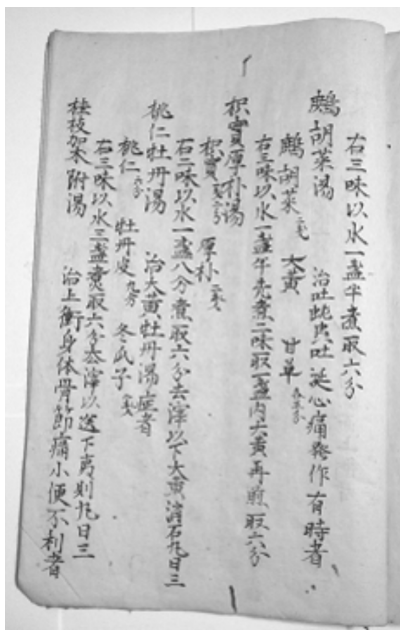 右三味以水一盞半煮取六分
鷓胡菜湯 治吐蚘或吐涎心痛発作有時者
鷓胡菜 大黄 甘草
右三味以水一盞半先煮二味取一盞内大黄再煎取六分
枳實厚朴湯
枳實 厚朴
右二味以水一盞八分煮取六分去滓以下大黄消石九日三
桃仁牡丹湯 治大黄牡丹湯症者
桃仁 牡丹皮 冬瓜子
右三味以水三盞煮取六分去滓以 下 則九日三
桂枝加朮附湯 治上衝身体骨節痛小便不利者